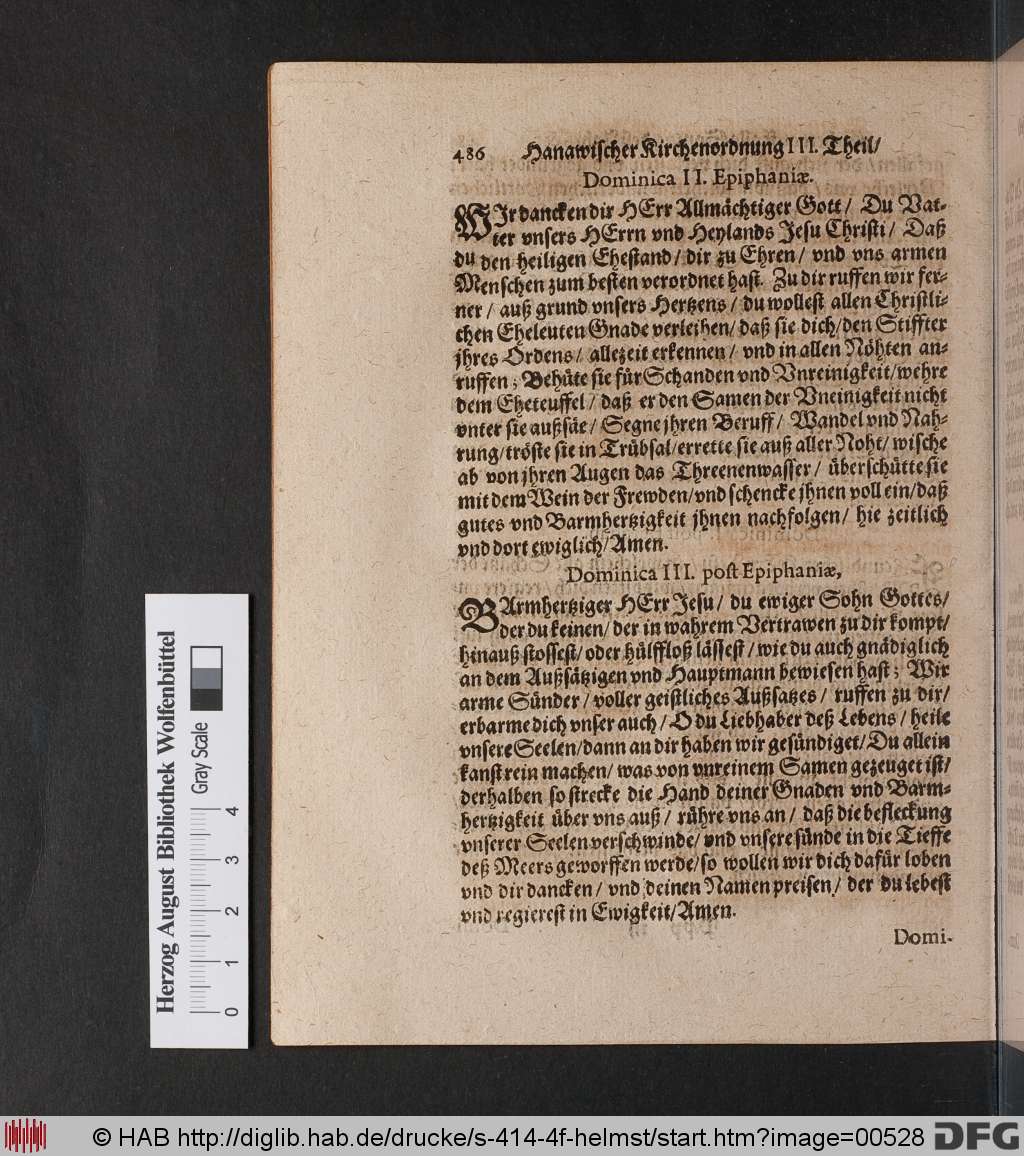 486 Hanawischer Kirchenordnung III. Theil/
Dominica II. Epiphaniæ.
WIr dancken dir HErr Allmächtiger Gott / Du Vat-
ter vnsers HErrn vnd Heylands Jesu Christi / Daß
du den heiligen Ehestand / dir zu Ehren / vnd vns armen
Menschen zum besten verordnet hast. Zu dir ruffen wir fer-
ner / auß grund vnsers Hertzens / du wollest allen Christli-
chen Eheleuten Gnade verleihen / daß sie dich / den Stiffter
jhres Ordens / allezeit erkennen / vnd in allen Nöhten an-
ruffen; Behüte sie für Schanden vnd Vnreinigkeit / wehre
dem Eheteuffel / daß er den Samen der Vneinigkeit nicht
vnter sie außsäe / Segne jhren Beruff / Wandel vnd Nah-
rung / tröste sie in Trübsal / errette sie auß aller Noht / wische
ab von jhren Augen das Threenenwasser / überschütte sie
mit dem Wein der Frewden / vnd schencke jhnen voll ein / daß
gutes vnd Barmhertzigkeit jhnen nachfolgen / hie zeitlich
vnd dort ewiglich / Amen.
Dominica III. post Epiphaniæ,
BArmhertziger HErr Jesu / du ewiger Sohn Gottes /
der du keinen / der in wahrem Vertrawen zu dir kompt /
hinauß stossest / oder hülffloß lässest / wie du auch gnädiglich
an dem Außsätzigen vnd Hauptmann bewiesen hast; Wir
arme Sünder / voller geistliches Außsatzes / ruffen zu dir /
erbarme dich vnser auch / O du Liebhaber deß Lebens / heile
vnsere Seelen / dann an dir haben wir gesündiget / Du allein
kanst rein machen / was von vnreinem Samen gezeuget ist /
derhalben so strecke die Hand deiner Gnaden vnd Barm-
hertzigkeit über vns auß / rühre vns an / daß die befleckung
vnserer Seelen verschwinde / vnd vnsere sünde in die Tieffe
deß Meers geworffen werde / so wollen wir dich dafür loben
vnd dir dancken / vnd deinen Namen preisen / der du lebest
vnd regierest in Ewigkeit / Amen.
Domi-
Herzog August Bibliothek Wolfenbüttel
Gray Scale
0 1 2 3 4
© HAB http://diglib.hab.de/drucke/s-414-4f-helmst/start.htm?image=00528
DFG